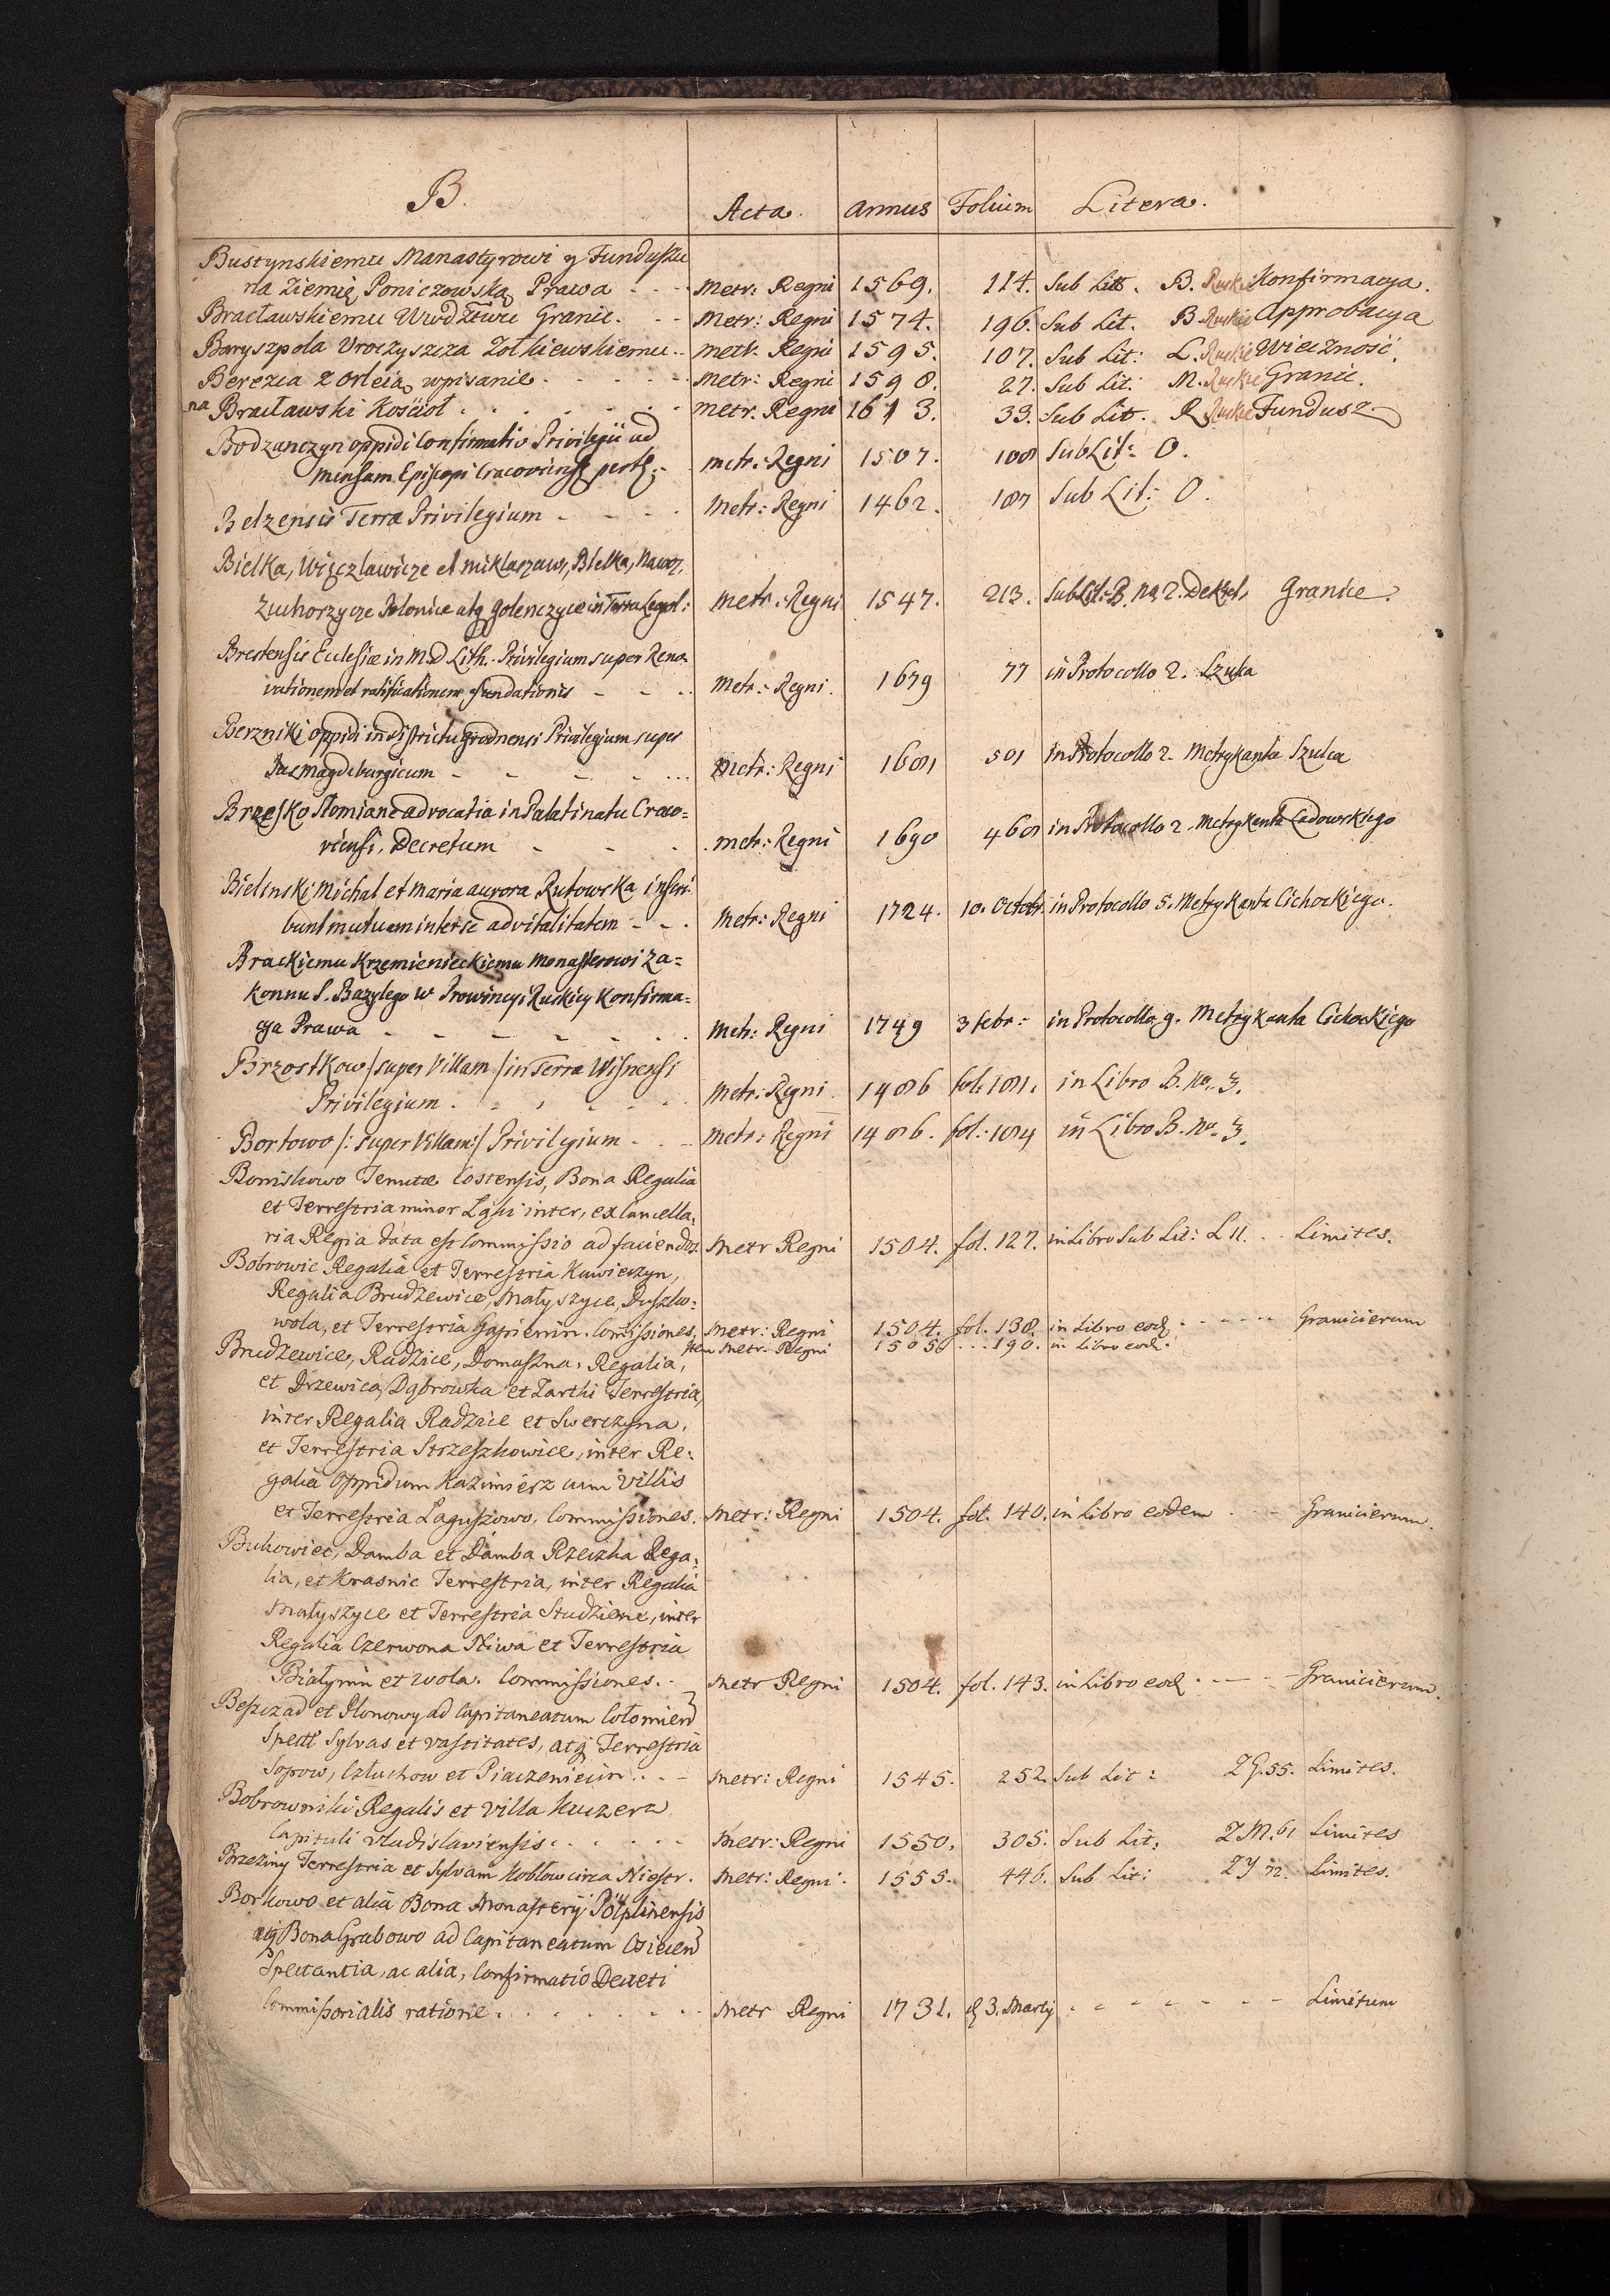 B. Acta. Annus Folium Litera.
Bustynskiemu Manastyrowi y Funduszu
na Ziemię Poniczowską Prawa - - - Metr: Regni 1569. 114. Sub Litt. B. Ruskie Konfirmacya.
Bracławskiemu Wwdztwu Granic. - - Metr: Regni 1574. 196. Sub Lit. B Ruskie Approbacya
Baryszpola Uroczyszcza Zołkiewskiemu.. Metr. Regni 1595. 107. Sub Lit: L. Ruskie Wieczność.
Berezca z Orleią wpisanie - - - - - Metr: Regni 1598. 27. Sub Lit: M. Ruskie Granic.
na Bracławski Kościoł . . . . . . . Metr. Regni 1613. 33. Sub Lit. R Ruskie Fundusz
Bodzanczyn oppidi Confirmatio Privilegii ad
Mensam Episcopi Cracoviens pert: - metr: Regni 1507. 108 Sub Lit: O.
Belzensis Terræ Privilegium - - - - Metr: Regni 1462. 187 Sub Lit: O.
Bielka, Więczławicze et Miklaszaw, Bielka,
Zuchorzycze Polonice atq Golenczyce in Terra Leopol: Metr: Regni 1547. 213. Sub Lit: B. na 2. Dekret. Granice.
Brestensis Eclesiæ in M.D Lith. Privilegium super Reno
vationem et ratificationem fundationis - - .. Metr: Regni. 1679 77 in Protocollo 2. Szulca
Berzniki oppidi in districtu Grodnensi Privilegium super
Jus Magdeburgicum - - - - ... Metr: Regni 1681 501 in Protocollo 2. Metrykanta Szulca
Brzesko Słomiane advocatia in Palatinatu Craco=
viensi, Decretum - - - . metr: Regni 1690 468 in Protocollo 2. Metrykanta Ladowskiego
Bielinski Michał et Maria aurora Rutowska inscri:
bunt mutuam inter se advitalitatem - - . Metr: Regni 1724. 10. Octobr. in Protocollo 5. Metrykanta Cichockiego.
Brackiemu Krzemienieckiemu Monasterowi Za=
konnu S. Bazylego w Prowincyi Ruskiey Konfirma=
cya Prawa - - - - - . . Metr: Regni 1749 3 febr: in Protocollo 9. Metrykanta Cichockiego
Brzostkow /super Villam/ in Terra Wisnensi
Privilegium . - - - - . Metr: Regni. 1486 fol: 181. in Libro B. No. 3.
Bortowo /: super Villam:/ Privilegium - . . Metr: Regni 1486. fol: 184 in Libro B. No. 3.
Boniskowo Tenutæ Costensis, Bona Regalia
et Terrestria minor Ląki inter, ex Cancella:
ria Regia data est Commissio ad faciendos Metr Regni 1504. fol. 127. in Libro Sub Lit: L 11. . . Limites.
Bobrowic Regalia et Terrestria Kuwieczyn,
Regalia Brudzewice, Małyszyce,
wola, et Terrestria Gapienin. Commissiones. Metr: Regni 1504. fol. 138. in Libro eod - - - - Granicierum
Item Metr. Regni 1505 ... 190. in Libro eod.
Brudzewice, Radzice, Domaszna, Regalia,
et Drzewica, Dąbrowka et Zarthi Terrestria,
inter Regalia Radzice et Swerczyna,
et Terrestria Strzeszkowice, inter Re:
galia Oppidum Kazimierz cum Villis
et Terrestria Laguszowo, Commissiones. Metr: Regni 1504. fol. 140. in Libro eodem . - - Granicierum.
Bukowiec, Damba et Damba Rzeczka Rega:
lia, et Krasnic Terrestria, inter Regalia
Małyszyce et Terrestria Studzienic, inter
Regalia Czerwona Niwa et Terrestria
Białynin et wola. Commissiones. . Metr Regni 1504. fol. 143. in Libro eod - - - - Granicierum.
Beszczad et Slonowy ad Capitaneatum Colomien
Spectt Sylvas et vastitates, atq Terrestria
Sopow, Cztuchow et Piaczenicin . . - Metr: Regni 1545. 252. Sub Lit: ZG. 55. Limites.
Bobrowniki Regalis et Villa Kuczera
Capituli Vladislaviensis . . . . . Metr: Regni 1550. 305. Sub Lit: ZM. 61 Limites
Brzeziny Terrestria et Sylvam Koblow circa Niestr. Metr: Regni. 1555. 446. Sub Lit: ZY 72. Limites.
Borkowo et alia Bona Monasterÿ Polplinensis
atq Bona Grabowo ad Capitaneatum Osiecen
Spectantia, ac alia, Confirmatio Decreti
Commissorialis ratione . . . . . . Metr Regni 1731. d 3. Martij . - - - - - - Limitum